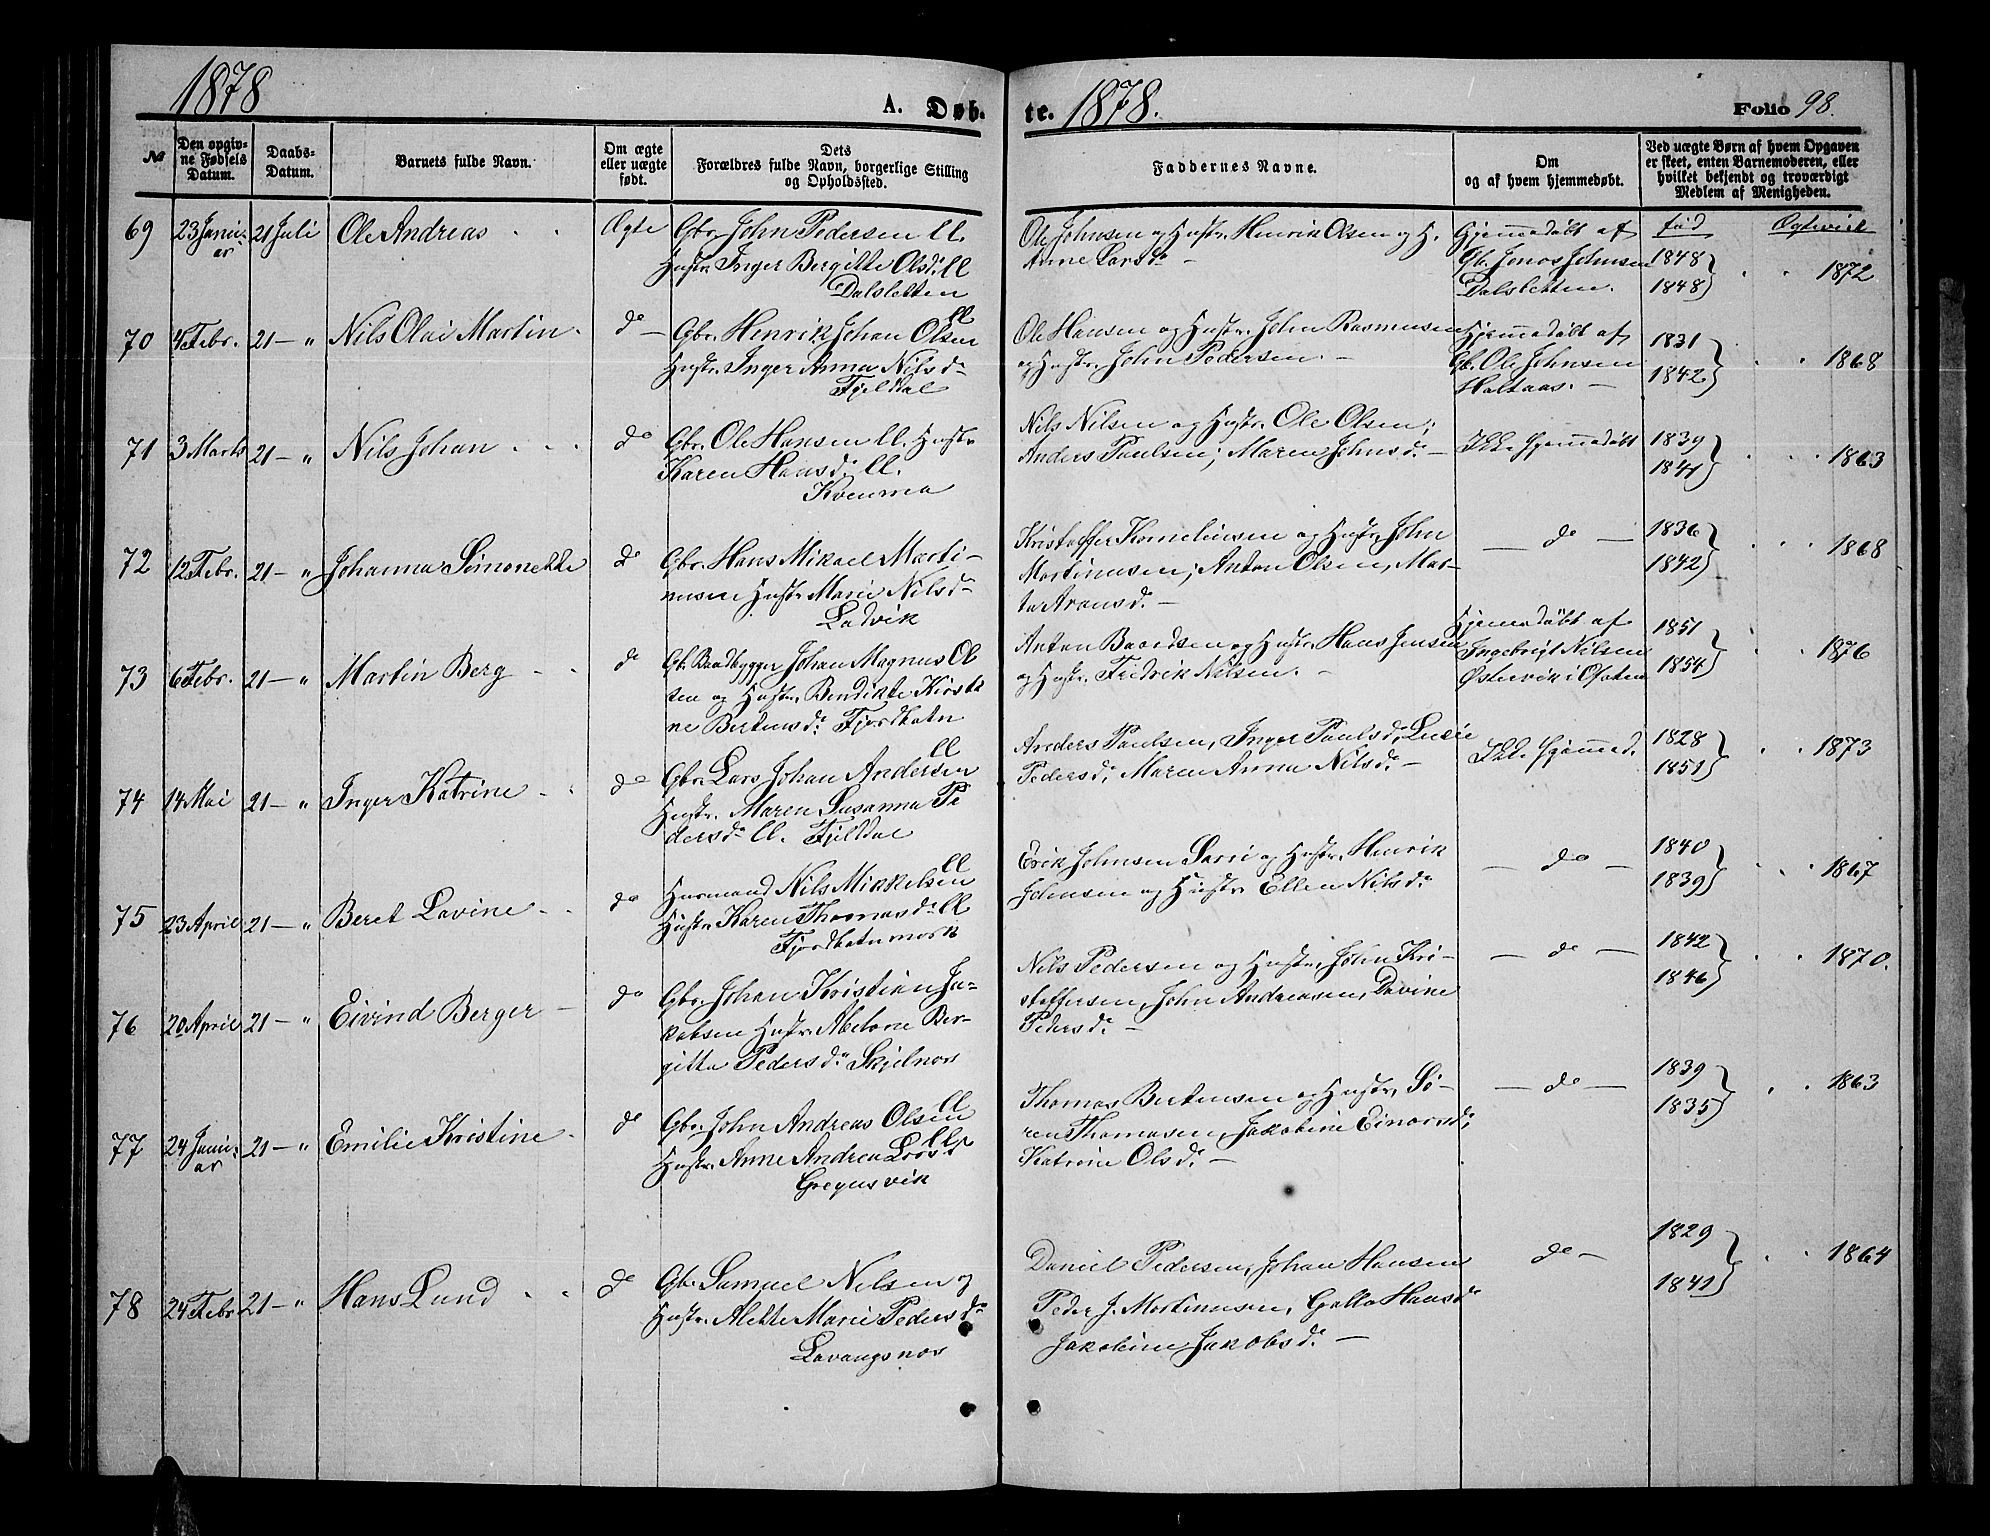 1878
A. Døb-
te. 1878.
Folio 98.
№
Den opgiv-
ne Fødsels
Datum.
Daabs-
Datum.
Barnets fulde Navn.
Om ægte
eller uægte
født.
Dets
Forældres fulde Navn, borgerlige Stilling
og Opholdssted.
Faddernes Navne.
Om
og af hvem hjemmedøbt.
Ved uægte Børn af hvem Opgaven
er skeet, enten Barnemoderen, eller
hvilket bekjendt og troværdigt
Medlem af Menigheden.
fød
Ægtevied
69
23 Janu-
ar
21 Juli
Ole Andreas
Ægte
Gbr. John Pedersen ll.
Hustr. Inger Bergitte Olsd. ll
Dalsletten
Ole Johnsen og Hustr. Henrik Olsen og H.
Anne Larsd.
Hjemmedøbt af
Gb. Jonas Johnsen
Dalsletten.
1848
1848
1872
70
4 Febr.
21 — "
Nils Olai Martin
do —
Gbr. Henrik Johan Olsen ll
Hustr. Inger Anna Nilsd.
Fjeldal
Ole Hansen og Hustr. John Rasmusen
og Hustr. John Pedersen. —
Hjemmedøbt af
Gb. Ole Johnsen
Haltaas. —
1831
1842
1868
71
3 Marts
21 — "
Nils Johan
do
Gbr. Ole Hansen ll. Hustr
Karen Hansd. ll.
Kvenma
Nils Nilsen og Hustr. Ole Olsen;
Anders Paulsen; Maren Johnsd. —
Ikke hjemmedøbt
1839
1841
1863
72
12 Febr.
21 — "
Johanna Simonette
do
Gbr. Hans Mikael Marti-
nusen Hustr. Marie Nilsd.
Ladvik
Kristoffer Kornelinsen og Hustr. John
Martinusen; Anton Olsen, Mar-
ta Aronsd. —
— do —
1836
1842
1868
73
6 Febr.
21 — "
Martin Berg
do
Gb. Baadbygger Johan Magnus Ol
sen og Hustr. Bendikte Kirsti
ne Bertensd. Fjordbotn
Anton Baardsen og Hustr. Hans Jensen
og Hustr. Fredrik Nilsen. —
Hjemmedøbt af
Ingebrigt Nilsen
Østervik i Ofoten
1851
1854
1876
74
14 Mai
21 — "
Inger Katrine
do
Gbr. Lars Johan Andersen ll
Hustr. Maren Susanna Pe
dersd. ll. Fjeldal
Anders Paulsen, Inger Paulsd. Lucie
Pedersd. Maren Anna Nilsd. —
Ikke hjemmed.
1828
1851
1873
75
23 April
21 — "
Beret Lovine
do
Husmand Nils Mikkelsen ll
Hustr. Karen Thomasd. ll
Fjordbotnmark
Erik Johnsen Sarri og Hustr. Henrik
Johnsen og Hustr. Ellen Nilsd.
— do —
1840
1839
1867
76
20 April
21 — "
Eivind Berger
do
Gbr. Johan Kristian Ja-
kobsen Hustr. Abelone Ber-
gitta Pedersd. Skjelnes
Nils Pedersen og Hustr. John Kri-
stoffersen, John Andreasen, Davine
Pedersd. —
— do —
1842
1846
1870.
77
24 Janu-
ar
21 — "
Emilie Kristine
do
Gbr. John Andreas Olsen ll
Hustr. Anne Andrea Larsd. ll
Gregusvik
Thomas Bertensen og Hustr. Sø-
ren Thomasen, Jakobine Einarsd.
Katrine Olsd. —
— do —
1839
1835
1863
78
24 Febr
21 — "
Hans Lund
do
Gb. Samuel Nilsen og
Hustr. Alette Marie Pedersd.
Lavangsnes
Daniel Pedersen, Johan Hansen
Peder J. Martinusen, Golla Hansd.
Jakobine Jakobsd. —
do —
1829
1841
1864